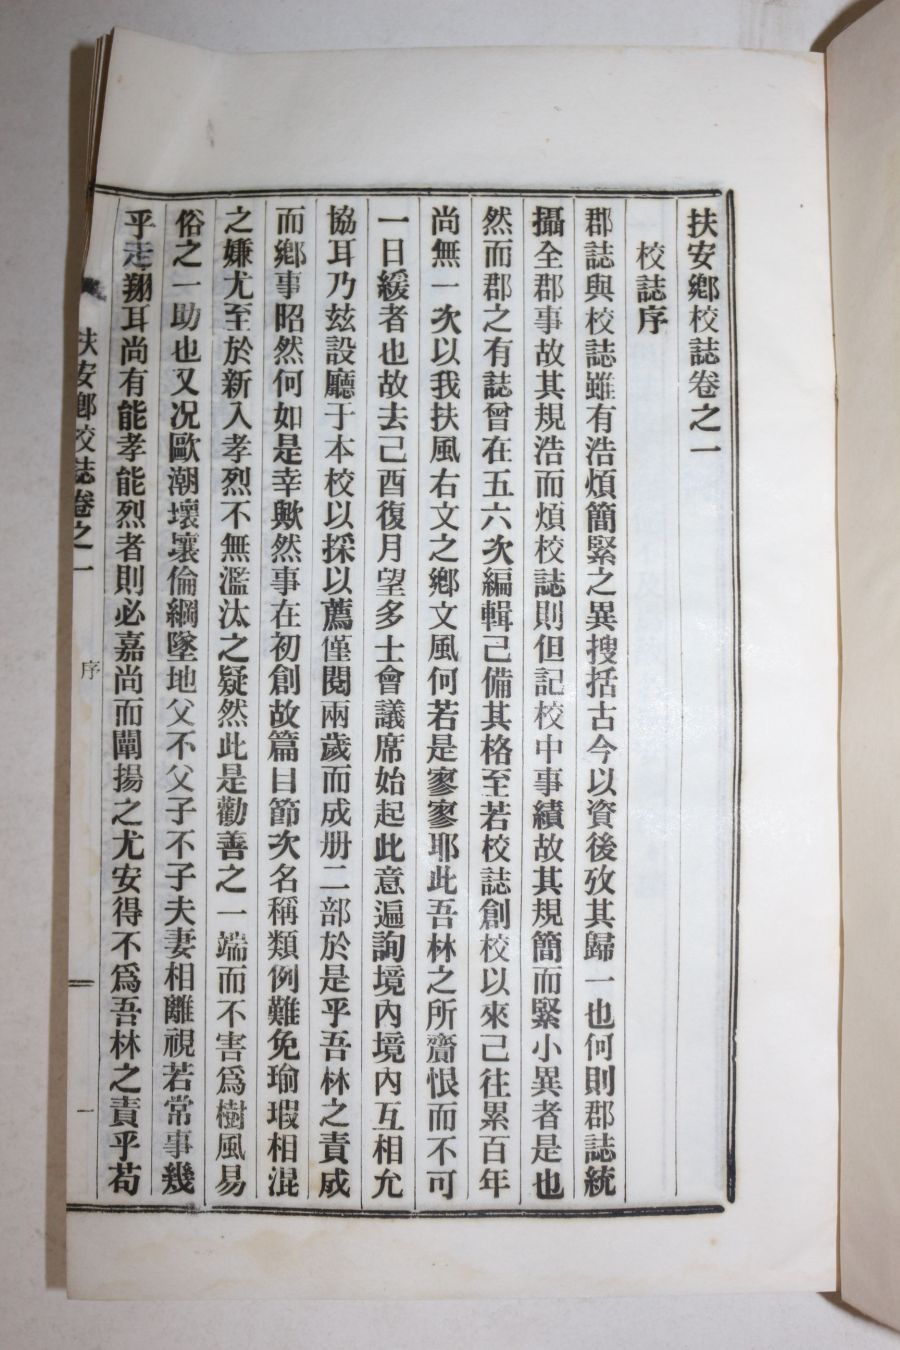 扶安鄕校誌卷之一
校誌序
郡誌與校誌雖有浩煩簡緊之異搜括古今以資後攷其歸一也何則郡誌統
攝全郡事故其規浩而煩校誌則但記校中事績故其規簡而緊小異者是也
然而郡之有誌曾在五六次編輯己備其格至若校誌創校以來己往累百年
尚無一次以我扶風右文之鄕文風何若是寥寥耶此吾林之所齎恨而不可
一日緩者也故去己酉復月望多士會議席始起此意遍詢境內境內互相允
協耳乃玆設廳于本校以採以薦僅閱兩歲而成册二部於是乎吾林之責成
而鄕事昭然何如是幸歟然事在初創故篇目節次名稱類例難免瑜瑕相混
之嫌尤至於新入孝烈不無濫汰之疑然此是勸善之一端而不害爲樹風易
俗之一助也又況歐潮壞壤倫綱墜地父不父子不子夫妻相離視若常事幾
乎走獺耳尚有能孝能烈者則必嘉尚而闡揚之尤安得不爲吾林之責乎苟
扶安鄕校誌卷之一
序
一